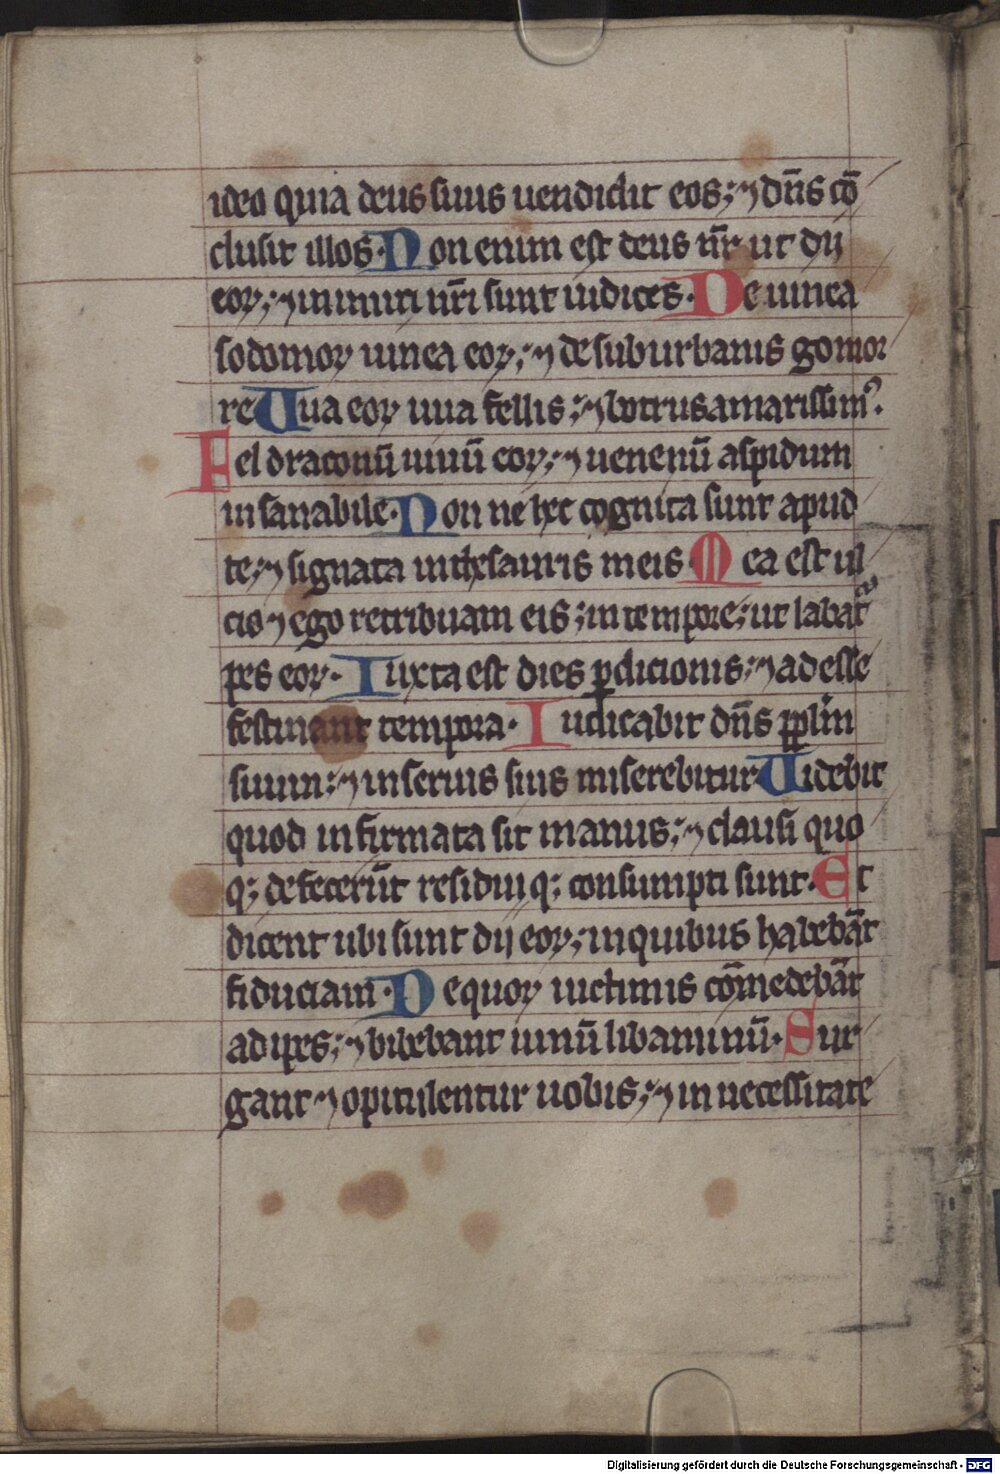 ideo quia deus suus uendidit eos; ⁊ dn̄s cō
clusit illos. Non enim est deus nr̄ ut dij
eoꝝ; ⁊ inimici nr̄i sunt iudices. De uinea
sodomoꝝ uinea eoꝝ; ⁊ de suburbanis gomor
re Uua eoꝝ uua fellis; ⁊ botrus amarissimꝰ.
Fel draconū uinū eoꝝ; ⁊ uenenū aspidum
insanabile. Non ne hec cognita sunt apud
te; ⁊ signata in thesauris meis Mea est ul
cio ⁊ ego retribuam eis; in tempore; ut labat᷑
pes eoꝝ. Iuxta est dies ꝑdicionis; ⁊ adesse
festinant tempora. Iudicabit dn̄s pp̄lm
suum; ⁊ in seruis suis miserebitur Uidebit
quod infirmata sit manus; ⁊ clausi quo
q; defecerūt residui q; consumpti sunt. Et
dicent ubi sunt dij eoꝝ; in quibus habebāt
fiduciam. De quoꝝ uictimis cōmedebāt
adipes; ⁊ bibebant uinū libaminū. Sur
gant ⁊ opitulentur uobis; ⁊ in necessitate
Digitalisierung gefördert durch die Deutsche Forschungsgemeinschaft - DFG